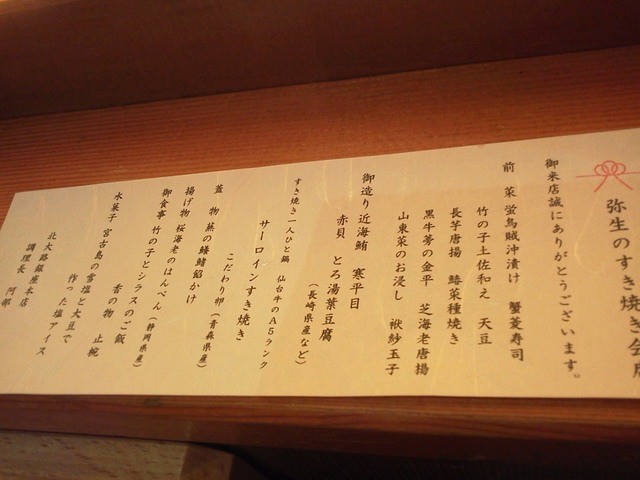 弥生のすき焼き会席
御来店誠にありがとうございます。
前 菜 蛍烏賊沖漬け 蟹菱寿司
竹の子土佐和え 天豆
長芋唐揚 鰆菜種焼き
黒牛蒡の金平 芝海老唐揚
山東菜のお浸し 袱紗玉子
御造り 近海鮪 寒平目
赤貝 とろ湯葉豆腐
(長崎県産など)
すき焼き一人ひと鍋 仙台牛のA5ランク
サーロインすき焼き
こだわり卵(青森県産)
蓋 物 蒸の鰆餡かけ
揚げ物 桜海老のはんぺん(静岡県産)
御食事 竹の子とシラスのご飯
香の物 止椀
水菓子 宮古島の雪塩と大豆で
作った塩アイス
北大路銀座本店
調理長 阿部